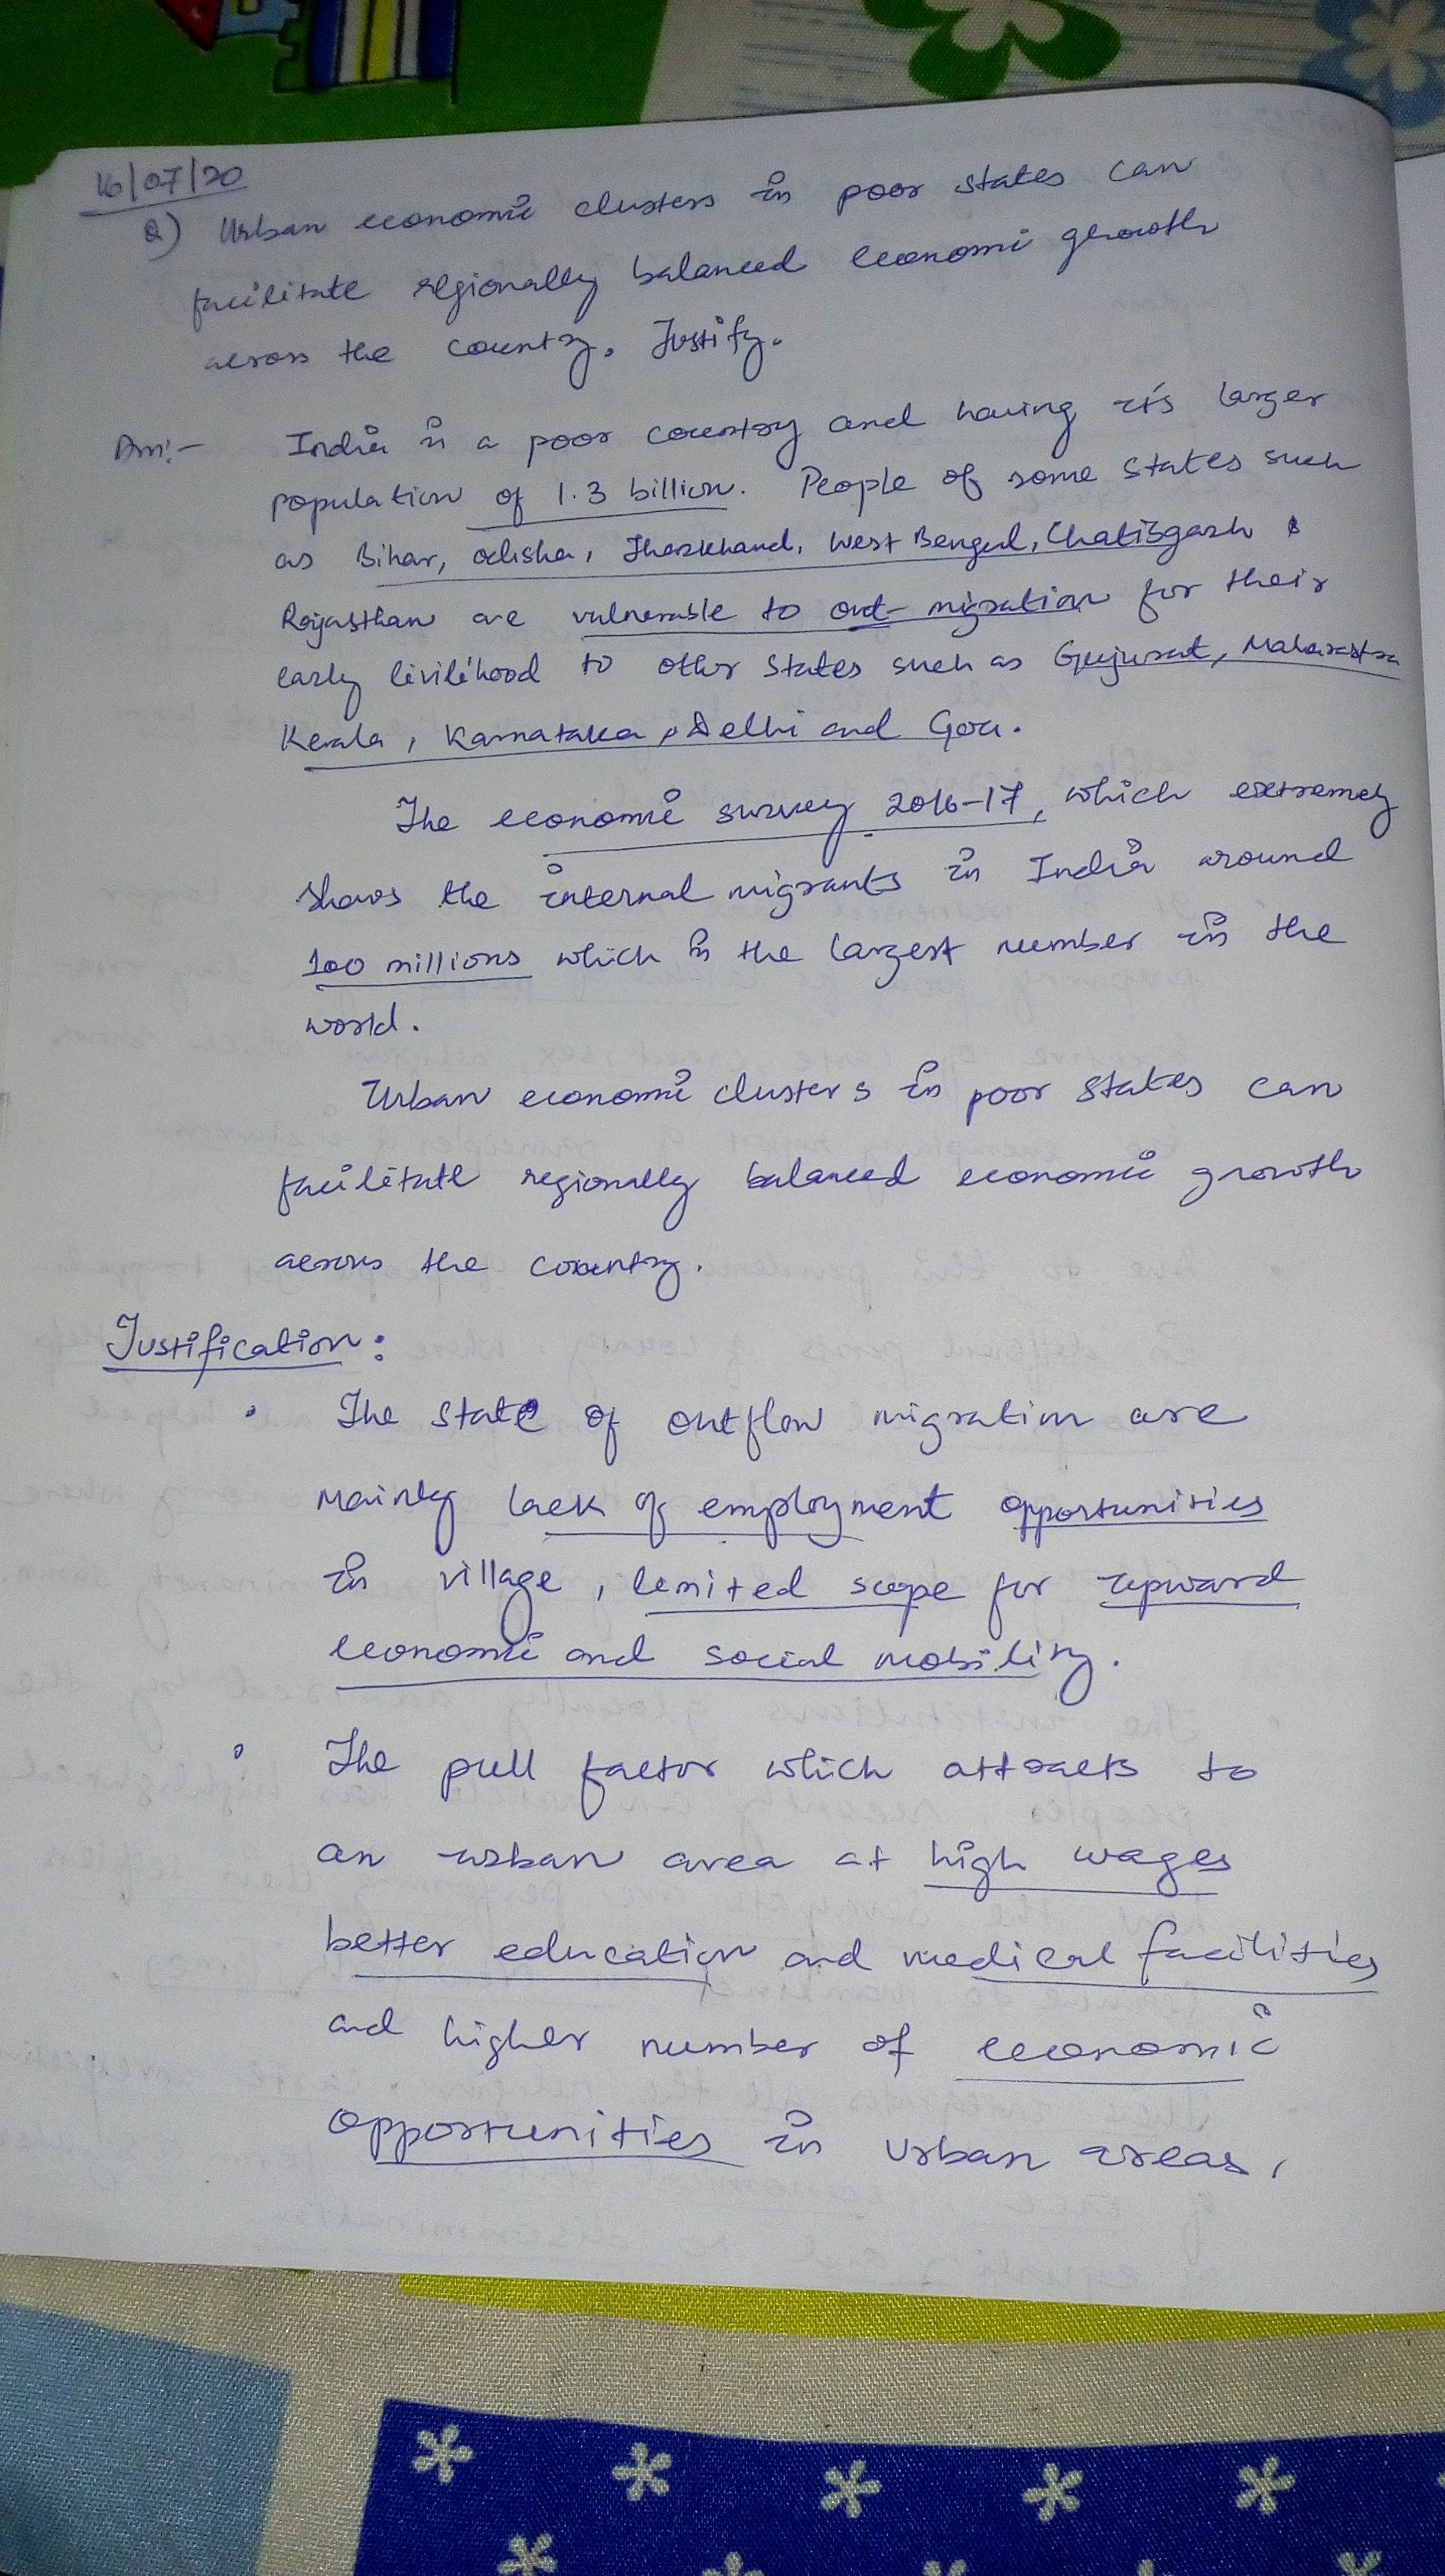 16/07/20
Q) Urban economic clusters in poor states can
facilitate regionally balanced economic growth
across the country. Justify.
Ans:- India is a poor country and having it's larger
population of 1.3 billion. People of some states such
as Bihar, Odisha, Jharkhand, West Bengal, Chatisgarh &
Rajasthan are vulnerable to out-migration for their
early livilihood to other states such as Gujurat, Maharastra
Kerala, Karnataka, Delhi and Goa.
The economic survey 2016-17, which extremely
shows the internal migrants in India around
100 millions which is the largest number in the
world.
Urban economic clusters in poor states can
facilitate regionally balanced economic growth
across the country.
Justification:
• The state of outflow migration are
mainly lack of employment opportunities
in village, limited scope for upward
economic and social mobility.
• The pull factor which attracts to
an urban area at high wages
better education and medical facilities
and higher number of economic
opportunities in urban areas,